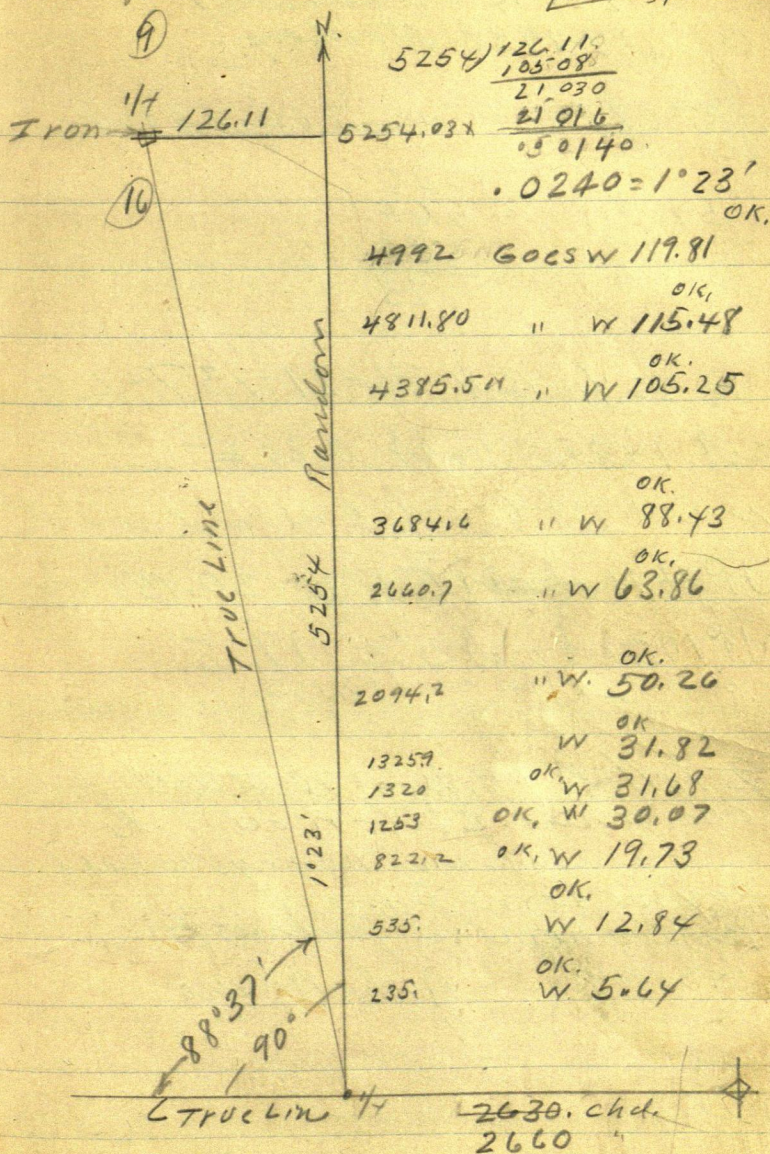 9
N
5254)126.11
105 08
21 030
21 016
.50140
.0240 = 1°23'
OK.
1/4
Iron
126.11
5254.03
16
4992 Goes W 119.81
OK,
4811.80 " W 115.48
OK.
4385.5 " W 105.25
OK.
3684.6 " W 88.43
OK,
2660.7 " W 63.86
OK.
2094.2 " W. 50.26
OK
1325.9 W 31.82
1320 OK, W 31.68
1253 OK, W 30.07
822.2 OK, W 19.73
OK.
535. W 12.84
OK.
235. W 5.64
True Line
5254 Random
1°23'
88°37'
90°
True Line
1/4
2630. chd.
2660 "